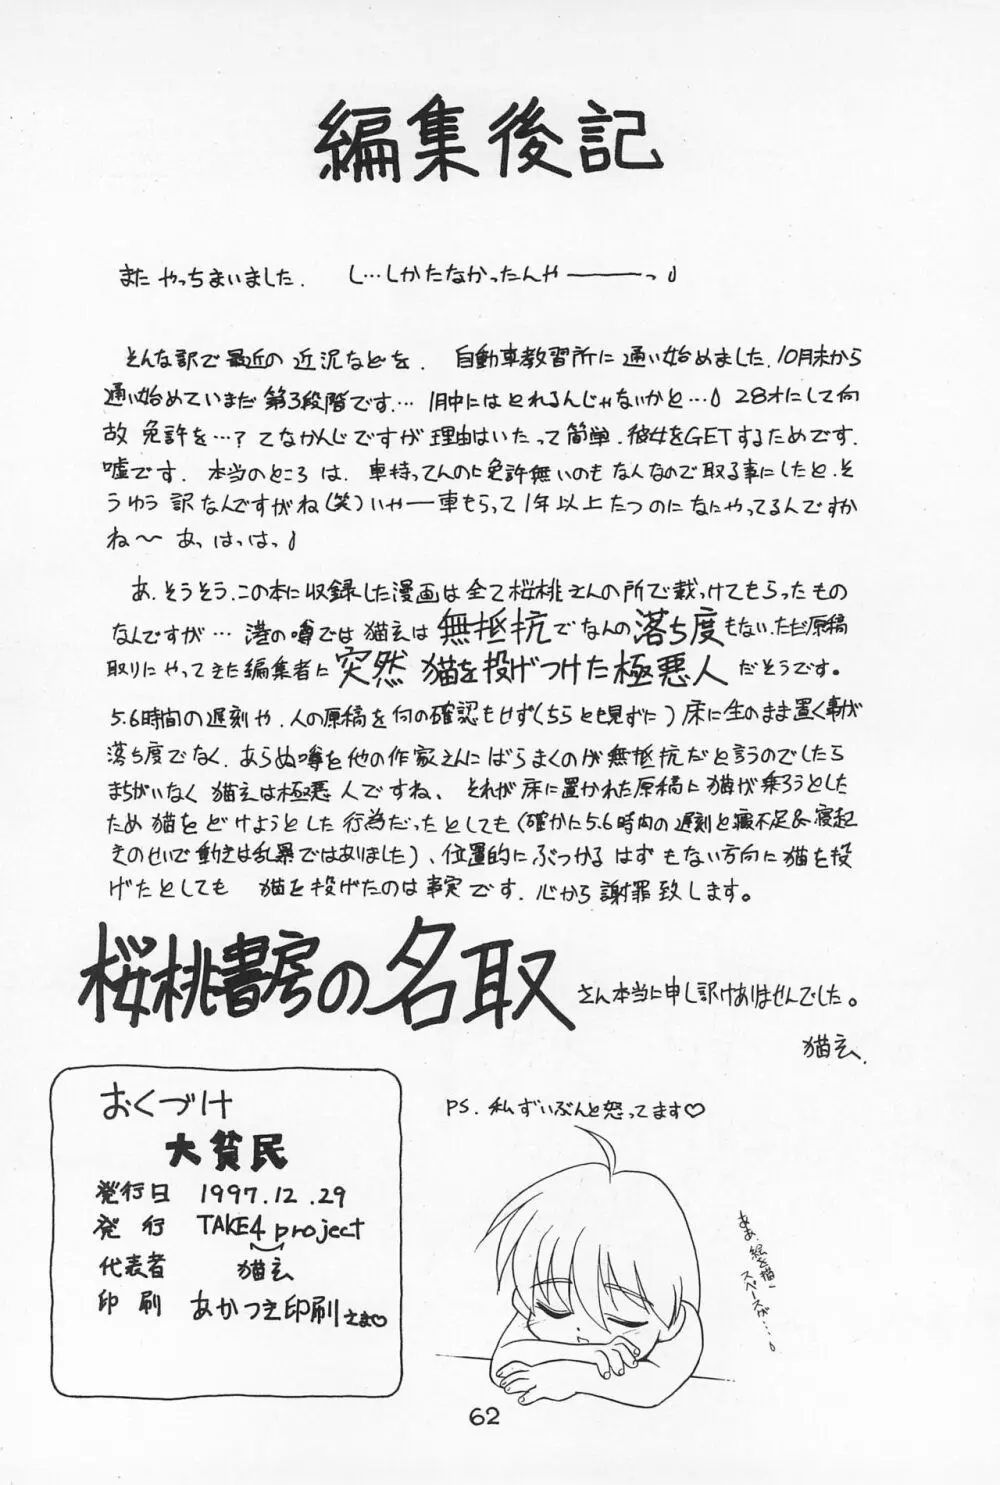 編集後記
またやっちまいました. し…しかたなかったんやーーーっ♪
そんな訳で最近の近況などを. 自動車教習所に通い始めました.10月末から
通い始めていまだ第3段階です…. 1月中にはとれるんじゃないかと…♪ 28才にして何
故 免許を…? てなかんじですが理由はいたって簡単.彼女をGETするためです.
嘘です. 本当のところは、車持ってんのに免許無いのもなんなので取る事にしたと.そ
うゆう訳なんですがね(笑)いやー車もらって1年以上たつのになにやってるんですか
ね〜 あっはっはっ♪
あ、そうそう.この本に収録した漫画は全て桜桃さんの所で載っけてもらったもの
なんですが… 港の噂では猫玄は無抵抗でなんの落ち度もない.ただ原稿
取りにやってきた編集者に突然猫を投げつけた極悪人だそうです。
5.6時間の遅刻や.人の原稿を何の確認もせず(ちらとも見ずに)床に生のまま置く事が
落ち度でなく、あらぬ噂を他の作家さんにばらまくのが無抵抗だと言うのでしたら
まちがいなく猫玄は極悪人ですね、それが床に置かれた原稿に猫が乗ろうとした
ため猫をどけようとした行為だったとしても(確かに5.6時間の遅刻と寝不足&寝起
きのせいで動きは乱暴ではありました)、位置的にぶつかるはずもない方向に猫を投
げたとしても 猫を投げたのは事実です.心から謝罪致します。
桜桃書房の名取さん本当に申し訳けありませんでした。
猫玄.
PS. 私ずいぶんと怒ってます♡
おくづけ
大貧民
発行日 1997.12.29
発行 TAKE4 project
代表者 猫玄
印刷 あかつき印刷さま♡
ああ、絵を描く
スペースが…♪
62